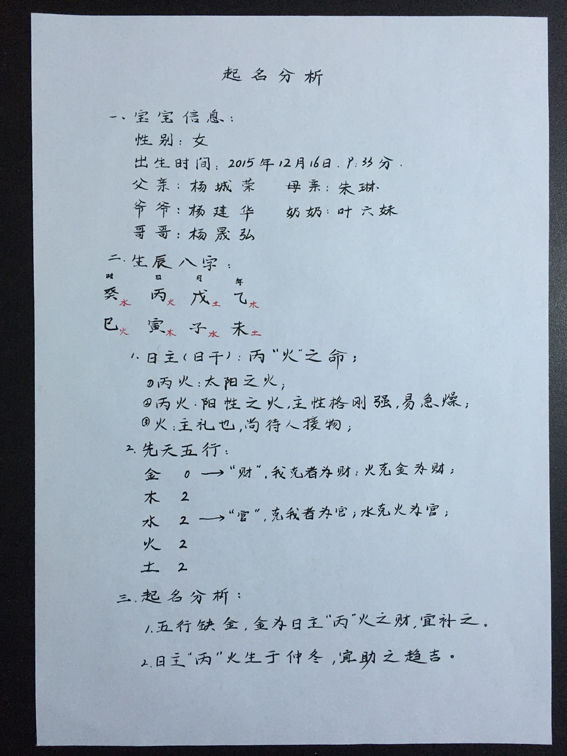 起名分析
一、宝宝信息:
性别:女
出生时间:2015年12月16日.9:33分.
父亲:杨城荣 母亲:朱琳
爷爷:杨建华 奶奶:叶六妹
哥哥:杨晟弘
二.生辰八字:
时 日 月 年
癸水 丙火 戊土 乙木
巳火 寅木 子水 未土
1.日主(日干):丙“火”之命;
①丙火:太阳之火;
②丙火.阳性之火,主性格刚强,易急燥;
③火:主礼也,尚待人接物;
2.先天五行:
金 0 →“财”,我克者为财:火克金为财;
木 2
水 2 →“官”,克我者为官;水克火为官;
火 2
土 2
三.起名分析:
1.五行缺金,金为日主“丙”火之财,宜补之.
2.日主“丙”火生于仲冬,宜助之趋吉。